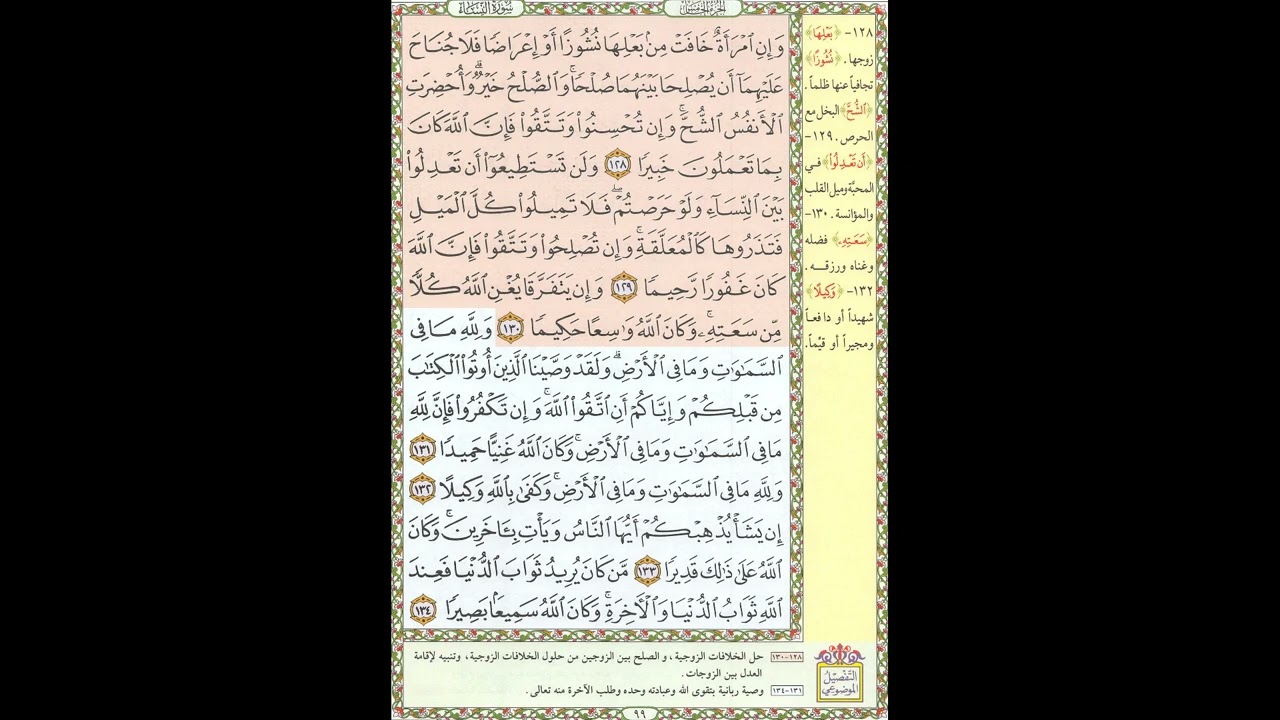 الجزء الخامس
سورة النساء
وَإِنِ ٱمْرَأَةٌ خَافَتْ مِنۢ بَعْلِهَا نُشُوزًا أَوْ إِعْرَاضًا فَلَا جُنَاحَ
عَلَيْهِمَآ أَن يُصْلِحَا بَيْنَهُمَا صُلْحًا ۚ وَٱلصُّلْحُ خَيْرٌ ۗ وَأُحْضِرَتِ
ٱلْأَنفُسُ ٱلشُّحَّ ۚ وَإِن تُحْسِنُوا۟ وَتَتَّقُوا۟ فَإِنَّ ٱللَّهَ كَانَ
بِمَا تَعْمَلُونَ خَبِيرًا ١٢٨ وَلَن تَسْتَطِيعُوٓا۟ أَن تَعْدِلُوا۟
بَيْنَ ٱلنِّسَآءِ وَلَوْ حَرَصْتُمْ ۖ فَلَا تَمِيلُوا۟ كُلَّ ٱلْمَيْلِ
فَتَذَرُوهَا كَٱلْمُعَلَّقَةِ ۚ وَإِن تُصْلِحُوا۟ وَتَتَّقُوا۟ فَإِنَّ ٱللَّهَ
كَانَ غَفُورًا رَّحِيمًا ١٢٩ وَإِن يَتَفَرَّقَا يُغْنِ ٱللَّهُ كُلًّا
مِّن سَعَتِهِۦ ۚ وَكَانَ ٱللَّهُ وَٰسِعًا حَكِيمًا ١٣٠ وَلِلَّهِ مَا فِى
ٱلسَّمَٰوَٰتِ وَمَا فِى ٱلْأَرْضِ ۗ وَلَقَدْ وَصَّيْنَا ٱلَّذِينَ أُوتُوا۟ ٱلْكِتَٰبَ
مِن قَبْلِكُمْ وَإِيَّاكُمْ أَنِ ٱتَّقُوا۟ ٱللَّهَ ۚ وَإِن تَكْفُرُوا۟ فَإِنَّ لِلَّهِ
مَا فِى ٱلسَّمَٰوَٰتِ وَمَا فِى ٱلْأَرْضِ ۚ وَكَانَ ٱللَّهُ غَنِيًّا حَمِيدًا ١٣١
وَلِلَّهِ مَا فِى ٱلسَّمَٰوَٰتِ وَمَا فِى ٱلْأَرْضِ ۚ وَكَفَىٰ بِٱللَّهِ وَكِيلًا ١٣٢
إِن يَشَأْ يُذْهِبْكُمْ أَيُّهَا ٱلنَّاسُ وَيَأْتِ بِـَٔاخَرِينَ ۚ وَكَانَ
ٱللَّهُ عَلَىٰ ذَٰلِكَ قَدِيرًا ١٣٣ مَّن كَانَ يُرِيدُ ثَوَابَ ٱلدُّنْيَا فَعِندَ
ٱللَّهِ ثَوَابُ ٱلدُّنْيَا وَٱلْأَخِرَةِ ۚ وَكَانَ ٱللَّهُ سَمِيعًۢا بَصِيرًا ١٣٤
١٢٨- ﴿بَعْلِهَا﴾
زوجها. ﴿نُشُوزًا﴾
تجافياً عنها ظلماً.
﴿الشُّحَّ﴾ البخل مع
الحرص. ١٢٩-
﴿أَن تَعْدِلُوا۟﴾ في
المحبَّة وميل القلب
والمؤانسة. ١٣٠-
﴿سَعَتِهِۦ﴾ فضله
وغناه ورزقه.
١٣٢- ﴿وَكِيلًا﴾
شهيداً أو دافعاً
ومجيراً أو قيِّماً.
التفصيل
الموضوعي
١٢٨-١٣٠ حل الخلافات الزوجية، و الصلح بين الزوجين من حلول الخلافات الزوجية، وتنبيه لإقامة
العدل بين الزوجات.
١٣١-١٣٤ وصية ربانية بتقوى الله وعبادته وحده وطلب الآخرة منه تعالى.
٩٩